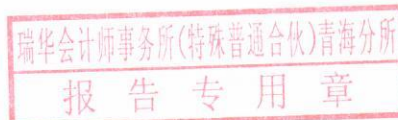 瑞华会计师事务所(特殊普通合伙)青海分所
报告专用章